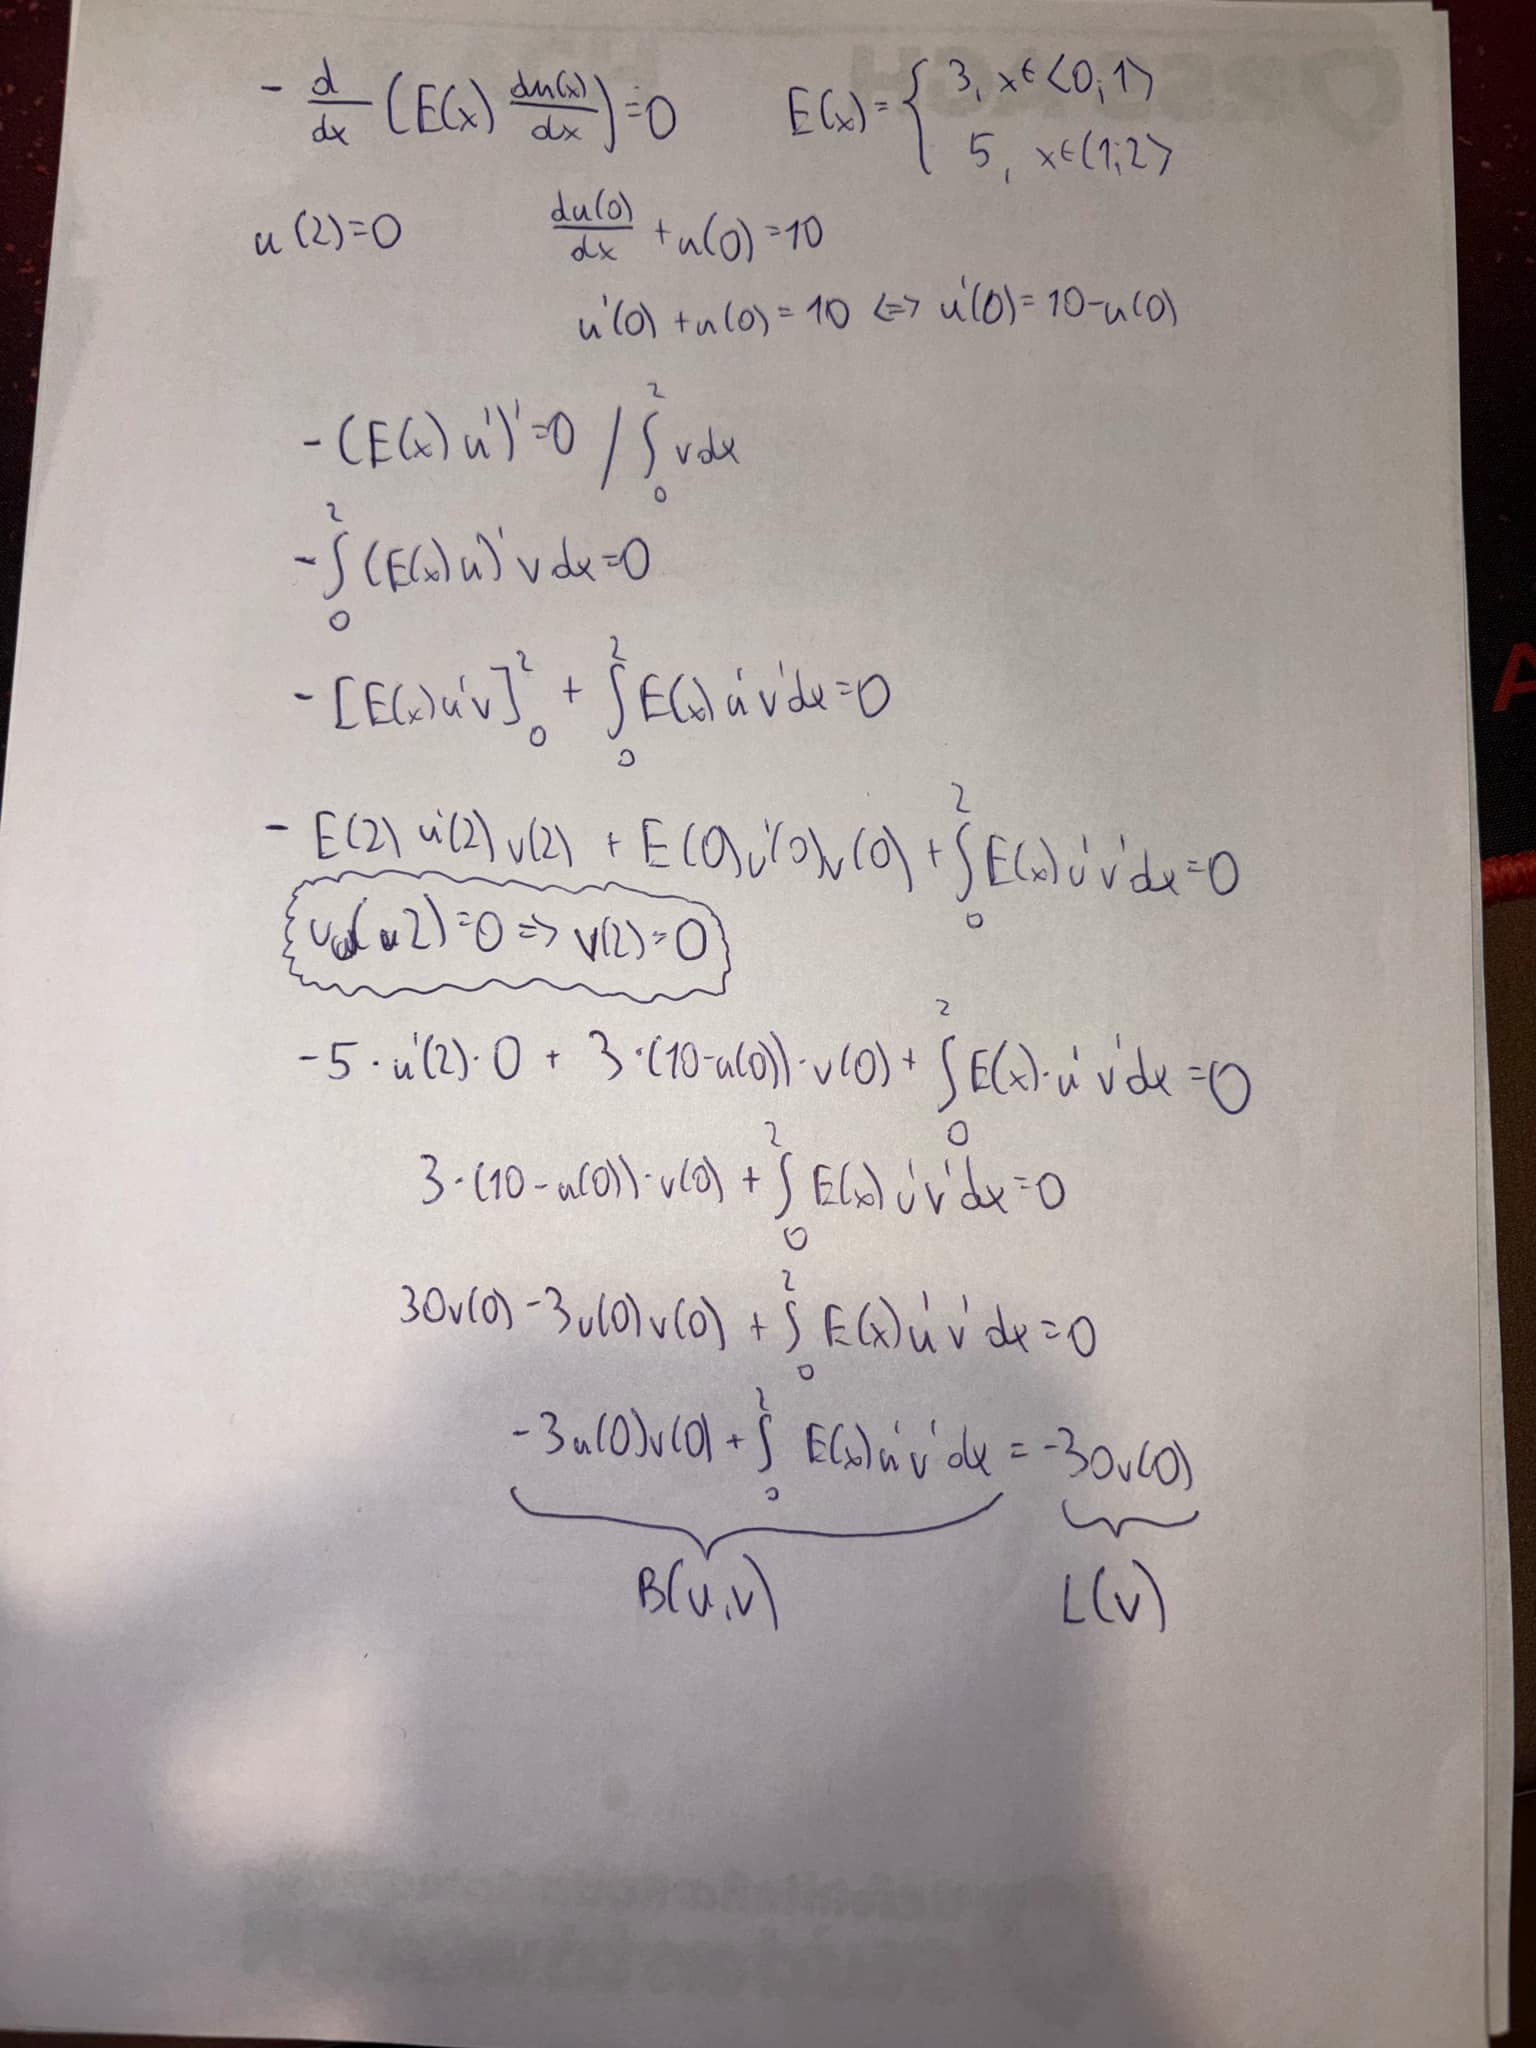 - d/dx (E(x) du(x)/dx) = 0    E(x) = { 3, x∈<0;1>
5, x∈(1;2>
u(2)=0    du(0)/dx + u(0) = 10
u'(0) + u(0) = 10 <=> u'(0) = 10-u(0)
-(E(x) u')' = 0 / ∫₀² v dx
-∫₀² (E(x) u)' v dx = 0
-[E(x) u'v]₀² + ∫₀² E(x) u'v'dx = 0
- E(2) u'(2) v(2) + E(0) u'(0) v(0) + ∫₀² E(x) u'v'dx = 0
(2) = 0 => v(2) = 0
-5 · u'(2) · 0 + 3 · (10-u(0)) · v(0) + ∫₀² E(x) · u'v'dx = 0
3 · (10-u(0)) · v(0) + ∫₀² E(x) u'v'dx = 0
30v(0) - 3u(0)v(0) + ∫₀² E(x) u'v'dx = 0
-3u(0)v(0) + ∫₀² E(x) u'v'dx = -30v(0)
B(u,v)    L(v)
A